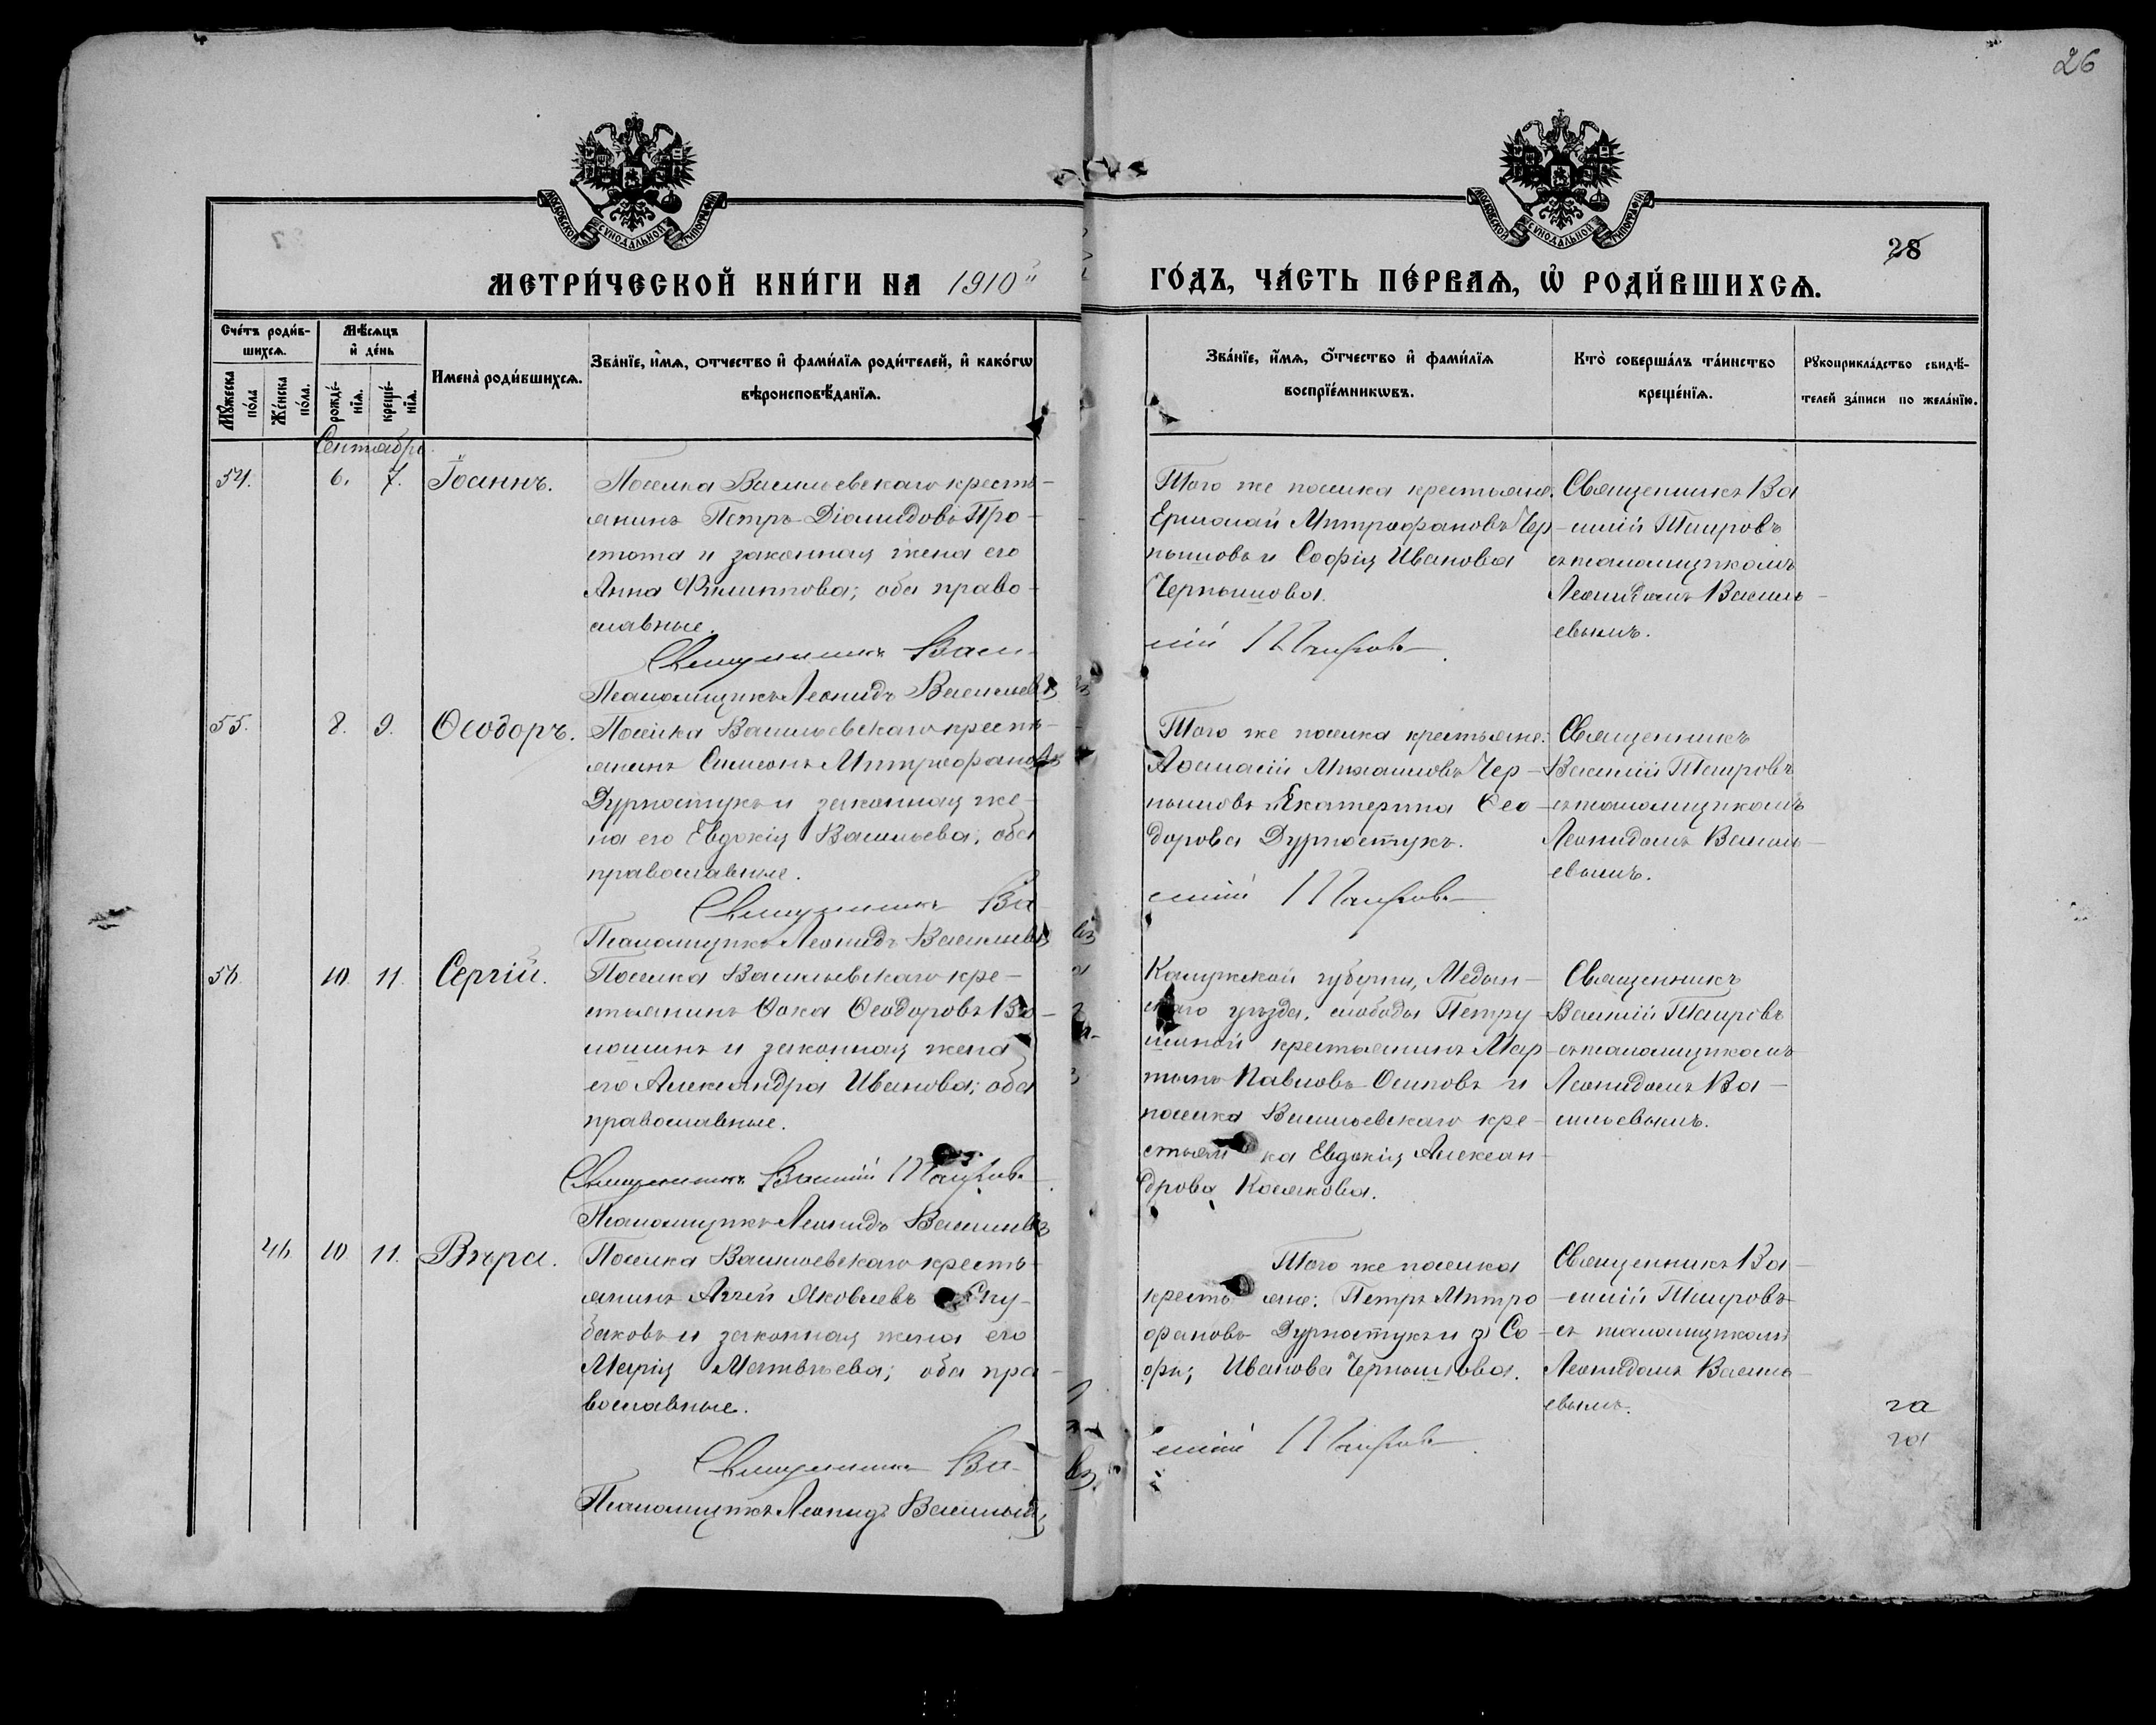 26
МОСКОВСКОЙ СѴНОДАЛЬНОЙ ТИПОГРАФІИ
МОСКОВСКОЙ СѴНОДАЛЬНОЙ ТИПОГРАФІИ
28
МЕТРИ́ЧЕСКОЙ КНИ́ГИ НА 1910й
ГО́ДЪ, ЧА́СТЬ ПЕ́РВАѦ, Ѡ҆ РОДИ́ВШИХСѦ.
Сче́тъ роди́в-
шихсѧ.
Мꙋжеска по́ла
Же́нска по́ла.
Мѣ́сѧцъ
и҆ де́нь
рожде́-
нїѧ.
креще́-
нїѧ.
Имена̀ роди́вшихсѧ.
Зва́нїе, и҆́мѧ, ѻ҆тчество и҆ фами́лїѧ роди́телей, и҆ како́гѡ
вѣроисповѣ́данїѧ.
Зва́нїе, и҆́мѧ, ѻ҆́тчество и҆ фами́лїѧ
воспрїе́мникѡвъ.
Кто̀ соверша́лъ та́инство
креще́нїѧ.
Рꙋкоприкла́дство свидѣ́-
телей за́писи по жела́нїю.
Сентябрь.
54. 6. 7. Іоаннъ.
Поселка Васильевскаго кресть-
янинъ Петръ Діомидовъ Про-
стота и законная жена его
Анна Филиппова; оба право-
славные.
Священникъ Васи-
Псаломщикъ Леонидъ Васильевъ
Того же поселка крестьяне:
Ермолай Митрофановъ Чер-
нышовъ и Софія Иванова
Чернышова.
лій Таировъ
Священникъ Ва-
силій Таировъ
съ псаломщикомъ
Леонидомъ Василь-
евымъ.
55. 8. 9. Ѳеодоръ.
Поселка Васильевскаго кресть-
янинъ Симеонъ Митрофановъ
Дурностукъ и законная же-
на его Евдокія Васильева; оба
православные.
Священникъ Ва-
Псаломщикъ Леонидъ Васильевъ
Того же поселка крестьяне:
Аѳанасій Михаиловъ Чер-
нышовъ и Екатерина Ѳео-
дорова Дурностукъ.
силій Таировъ
Священникъ
Василій Таировъ
съ псаломщикомъ
Леонидомъ Василь-
евымъ.
56. 10. 11. Сергій.
Поселка Васильевскаго кре-
стьянинъ Ѳока Ѳеодоровъ Во-
лошинъ и законная жена
его Александра Иванова; оба
православные.
Священникъ Василій Таировъ
Псаломщикъ Леонидъ Васильевъ
Калужской губерніи, Медын-
скаго уѣзда, слободы Петру-
шиной крестьянинъ Мар-
тынъ Павловъ Осиповъ и
поселка Васильевскаго кре-
стьянка Евдокія Алексан-
дрова Косякова.
Священникъ
Василій Таировъ
съ псаломщикомъ
Леонидомъ Ва-
сильевымъ.
46. 10. 11. Вѣра.
Поселка Васильевскаго кресть-
янинъ Аггей Яковлевъ Ску-
баковъ и законная жена его
Марія Матвѣева; оба пра-
вославные.
Священникъ Ва-
Псаломщикъ Леонидъ Васильевъ
Того же поселка
крестьяне: Петръ Митро-
фановъ Дурностукъ и Со-
фія Иванова Чернышова.
силій Таировъ
Священникъ Ва-
силій Таировъ
съ псаломщикомъ
Леонидомъ Василь-
евымъ.